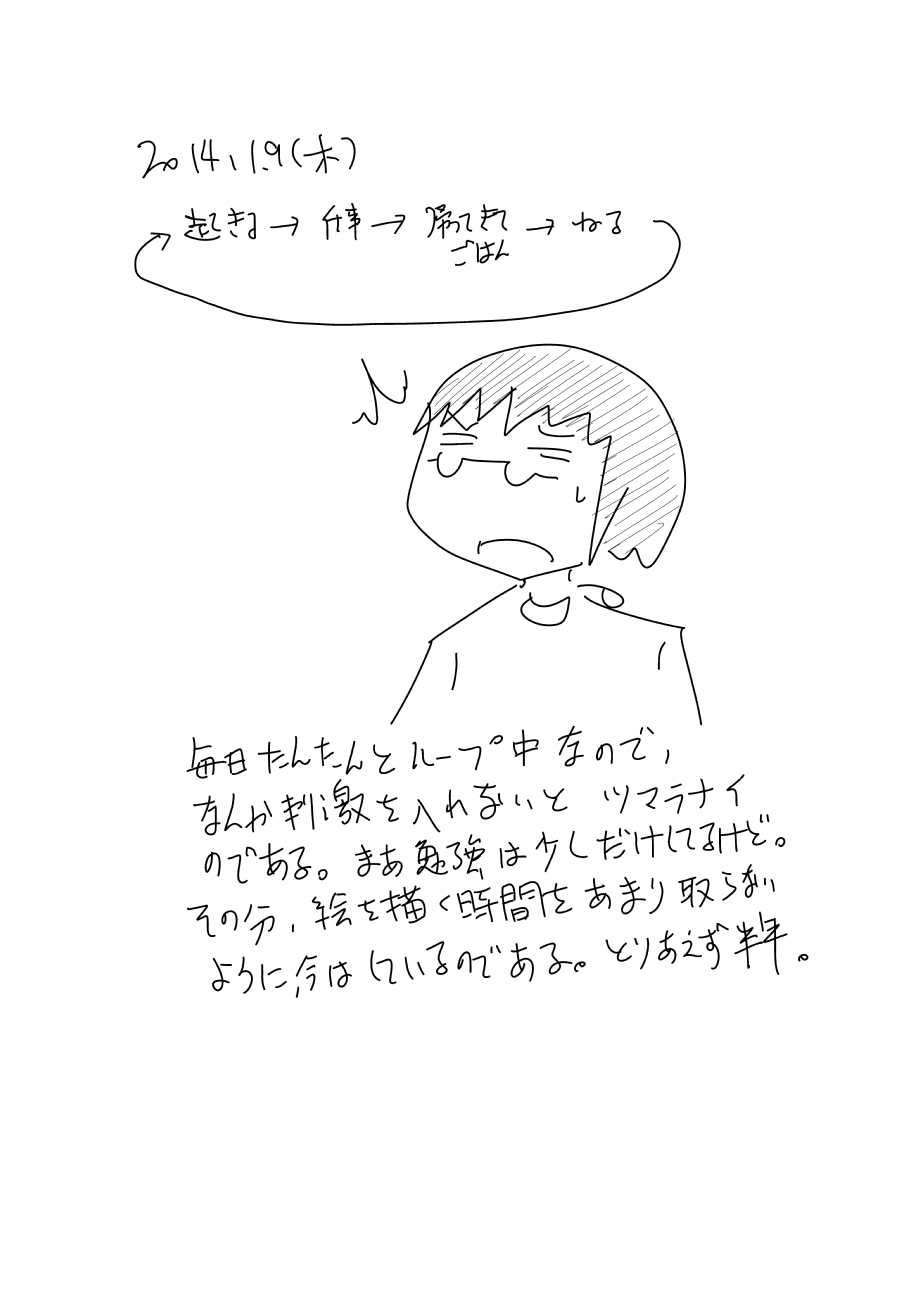 2014.1.9(木)
起きる→仕事→帰ってきて→ねる
ごはん
毎日たんたんとループ中なので,
なんか刺激を入れないと ツマラナイ
のである。まあ勉強は少しだけしてるけど。
その分、絵を描く時間をあまり取らない
ように今はしているのである。とりあえず半年。